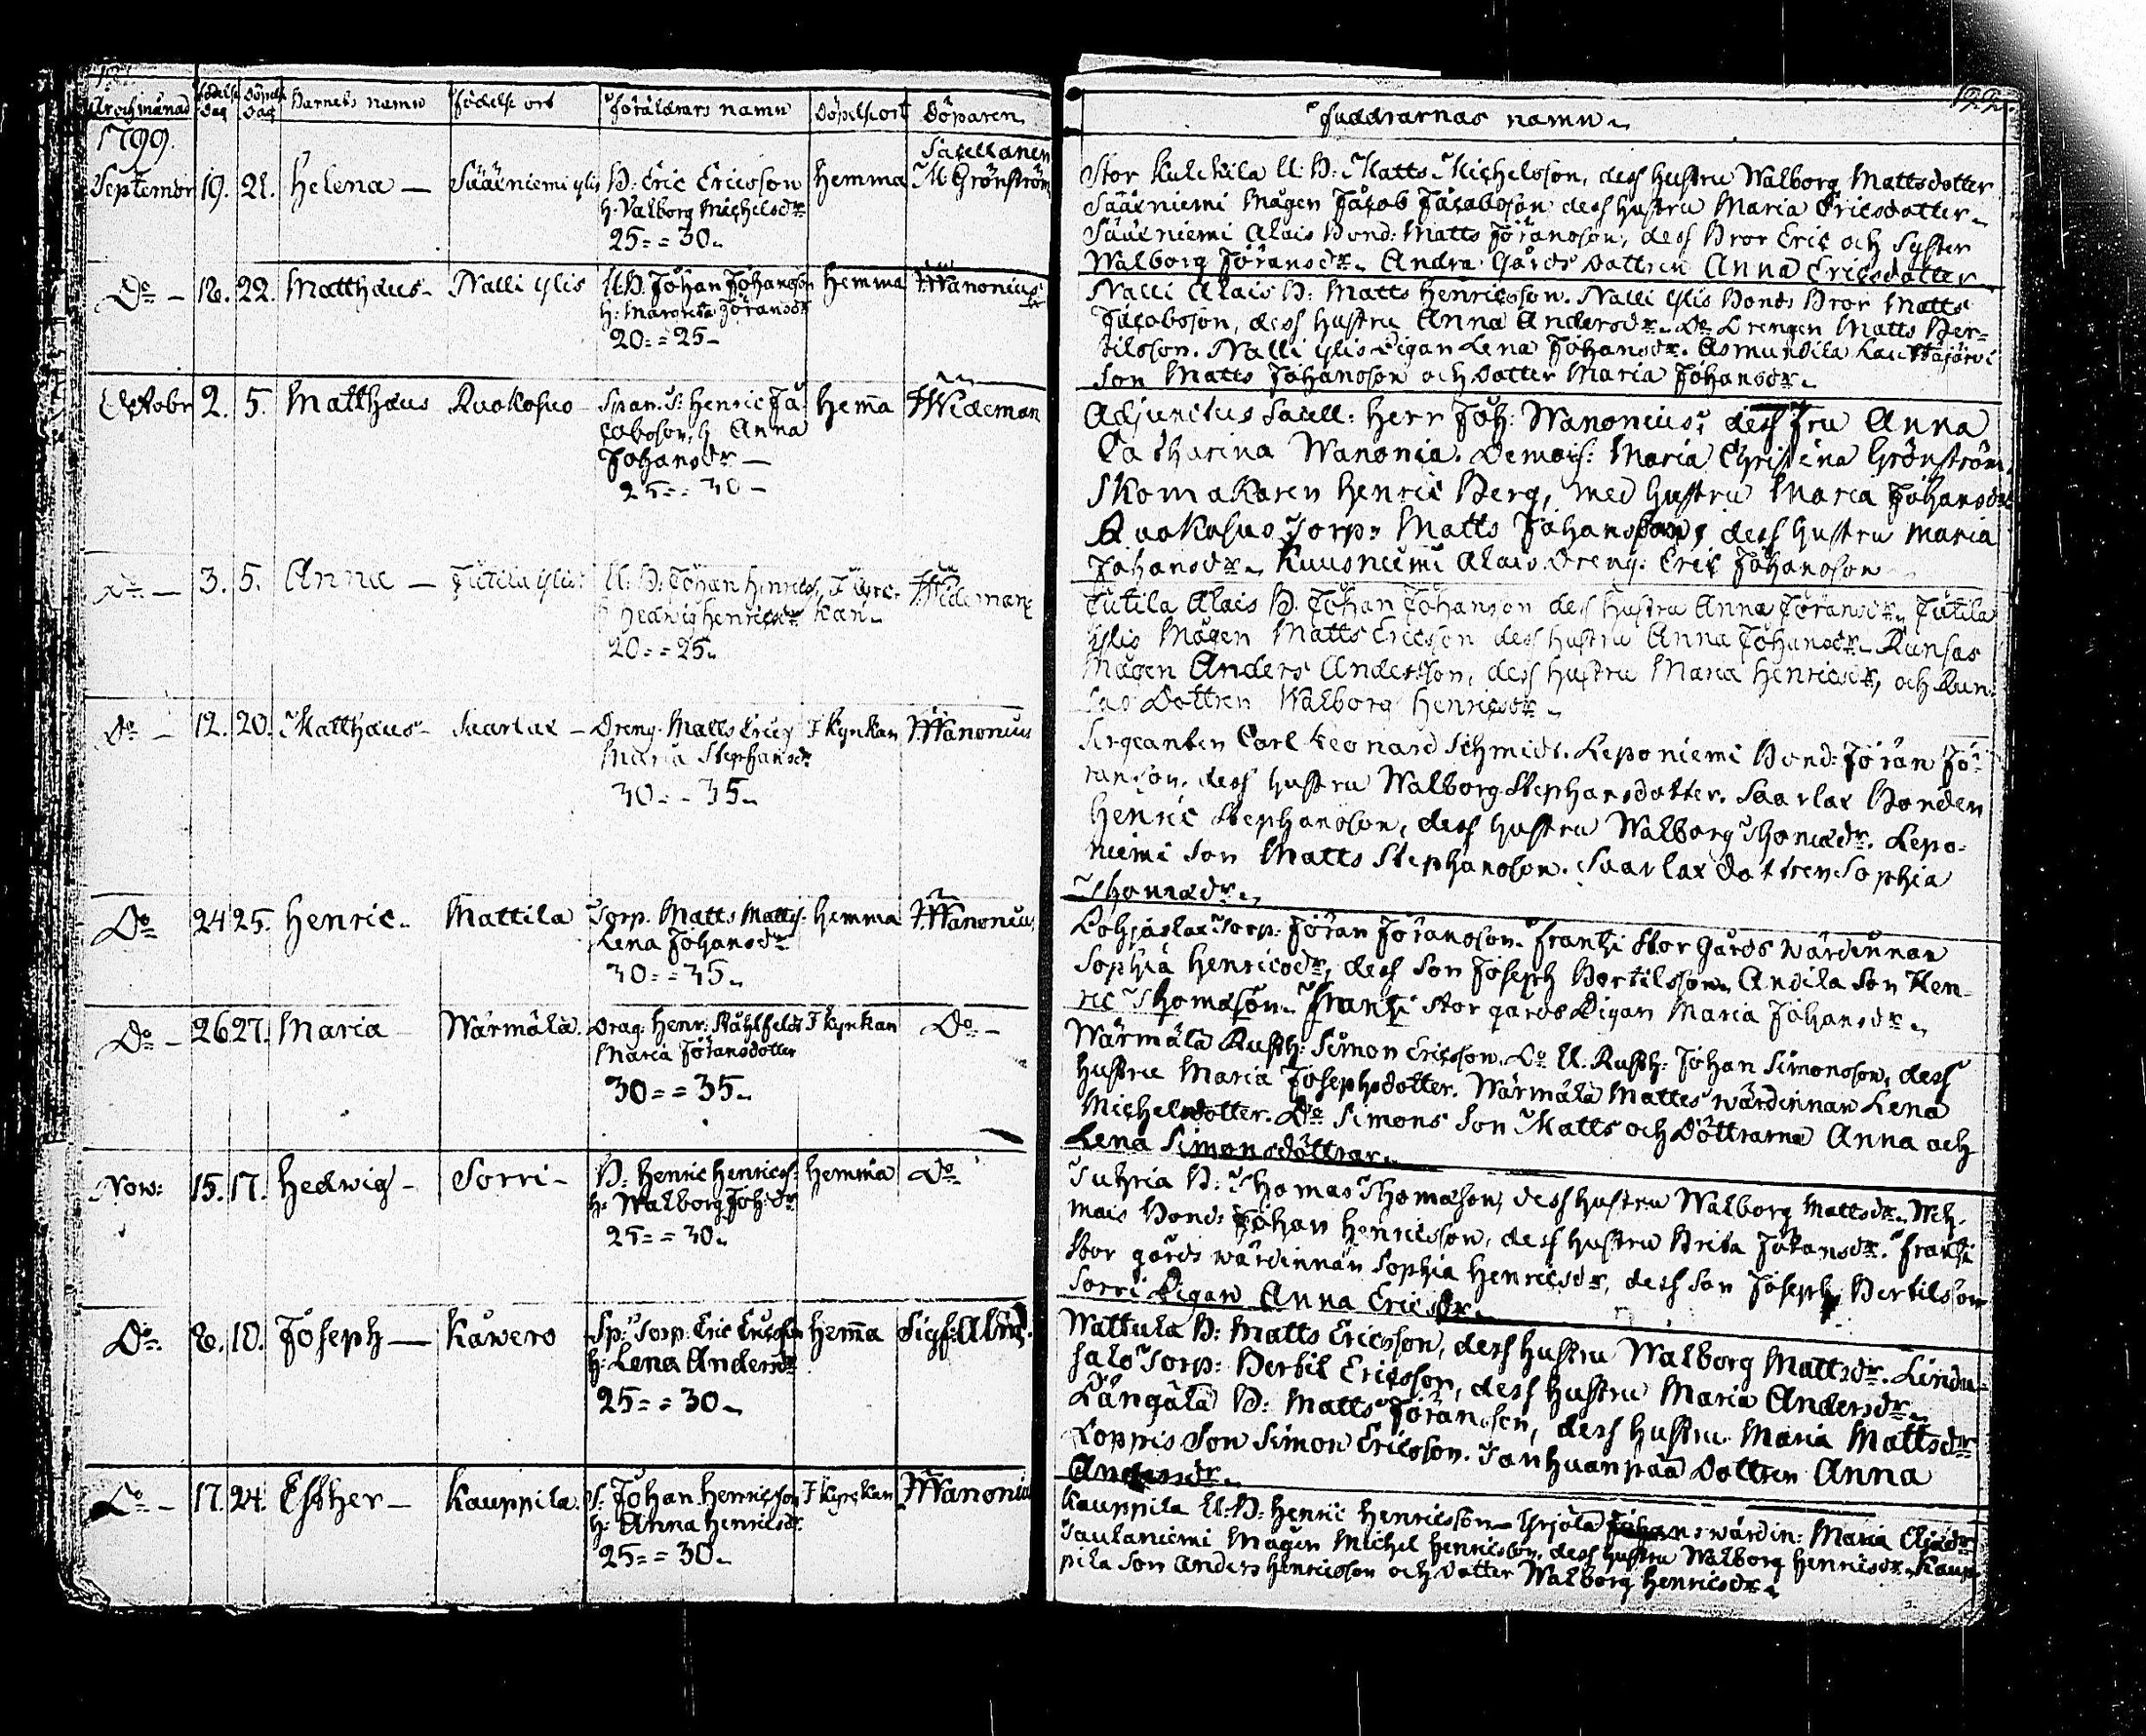 122.
År och månad födelse dag Döpelse dag Barnets namn födelse ort föräldrars namn Döpelse ort Döparen
1799.
September 19. 21. Helena — Sääxniemi ylis B: Eric Ericsson Hemma Sacellanen
H. Valborg Michelsdr M. Grönström
25 = = 30.
Do — 18. 22. Matthæus — Nalli ylis U. B. Johan Johansson Hemma J. Wanonius
H: Margreta Jöransdr
20 = = 25 —
October 2. 5. Matthæus Ruokosuo — Span. S: Henric Ja- Hema J. Wideman
cobsson, H Anna
Johansdr —
25 = = 30 —
Do — 3. 5. Anna — Jutila ylis U: B: Johan Henricss. I kyrc- J. Wideman
H Hedwig Henricsdr kan.
20 = = 25.
Do — 12. 20. Matthæus — Saarlax — Dreng. Matts Erics I kyrkan J. Wanonius
Maria Stephansdr
30 = = 35.
Do 24 25. Henric. Mattila Torp. Matts Matts. Hemma J. Wanonius
Lena Johansdr
30 = = 35.
Do — 26 27. Maria — Wärmälä. Drag: Henr: Ståhlfeldt I kyrkan Do —
Maria Jöransdotter
30 = = 35.
Now: 15. 17. Hedwig — Sorri — B: Henric Henricss: Hemma Do
H: Walborg Joh:dr
25 = = 30.
Do. 8. 10. Joseph — Käwero Sp: Torp. Eric Ericsson Hema Sigf: Alm
H: Lena Andersdr
25 = = 30.
Do — 17. 24. Esther — Kauppila. S: Johan Henricsson I kyrkan J. Wanonius
H: Anna Henricsdr.
25 = = 30.
faddrarnas namn.
Stor Kulckila U. B: Matts Michelsson, dess hustru Walborg Mattsdotter
Sääxniemi Mågen Jacob Jacobsson dess hustru Maria Ericsdotter.
Sääxniemi Alais Bond: Matts Jöransson, dess Bror Eric och Syster
Walborg Jöransdr. Andra Gårds Dottren Anna Ericsdotter
Nalli Alais B: Matts Henricsson. Nalli ylis Bonds Bror Matts
Jacobsson, dess hustru Anna Andersdr. Do Drengen Matts Ber-
tilsson. Nalli ylis Pigan Lena Johansdr. Asmundila
Son Matts Johansson och Dotter Maria Johansdr.
Adjunctus Sacell: Herr Joh: Wanonius; dess Fru Anna
Catharina Wanonia. Demois: Maria Christina Grönström.
Skomakaren Henric Berg, med hustru Maria Johansdr
Ruokosuo Torp: Matts Johansson, dess hustru Maria
Johansdr. Kuusniemi Alais Dreng. Eric Johansson
Jutila Alais B. Johan Johanson dess hustru Anna Jöransdr. Jutila
Ylis Mågen Matts Ericsson dess hustru Anna Johansdr. Runsas
Mågen Anders Andersson, dess hustru Maria Henricsdr, och Run-
sas Dottren Walborg Henricsdr.
Sergeanten Carl Leonard Schmidt. Leponiemi Bond: Jöran Jö-
ranson. dess hustru Walborg Stephansdotter. Saarlax Bonden
Henric Stephansson, dess hustru Walborg Thomædr. Lepo-
niemi Son Matts Stephansson. Saarlax Dottren Sophia
Thomædr.
Lohjaslax Torp: Jöran Jöransson. Frantzi Stor gårds wärdinnan
Sophia Henricsdr, dess Son Joseph Bertilsson. Andila Son Hen-
ric Thomæson. Frantzi Stor gårds Pigan Maria Johansdr.
Wärmälä Rusth: Simon Ericsson. Do U. Rusth: Johan Simonsson, dess
hustru Maria Josephsdotter. Wärmälä Mattes wärdinnan Lena
Michelsdotter. Do Simons Son Matts och Döttrarna Anna och
Lena Simonsdöttrar.
Tuhria B: Thomas Thomæson, dess hustru Walborg Mattsdr.
mais Bond: Johan Henricsson, dess hustru Brita Johansdr. Frantzi
Stor gårds wärdinnan Sophia Henricsdr, dess Son Joseph Bertilsson
Sorri Pigan Anna Ericsdr.
Wattula B: Matts Ericsson, dess hustru Walborg Mattsdr. Lindu-
salo Torp: Bertil Ericsson, dess hustru Maria Andersdr.
Längälä B: Matts Jöransson, dess hustru Maria Mattsdr
Loppis Son Simon Ericsson. Tanhuanpää Dottren Anna
Andersdr.
Kauppila U. B: Henric Henricsson — Yrjölä wärdin: Maria Eliædr
Taulaniemi Mågen Michel Henricsson, dess hustru Walborg Henricsdr. Kaup-
pila Son Anders Henricsson och Dotter Walborg Henricsdr.